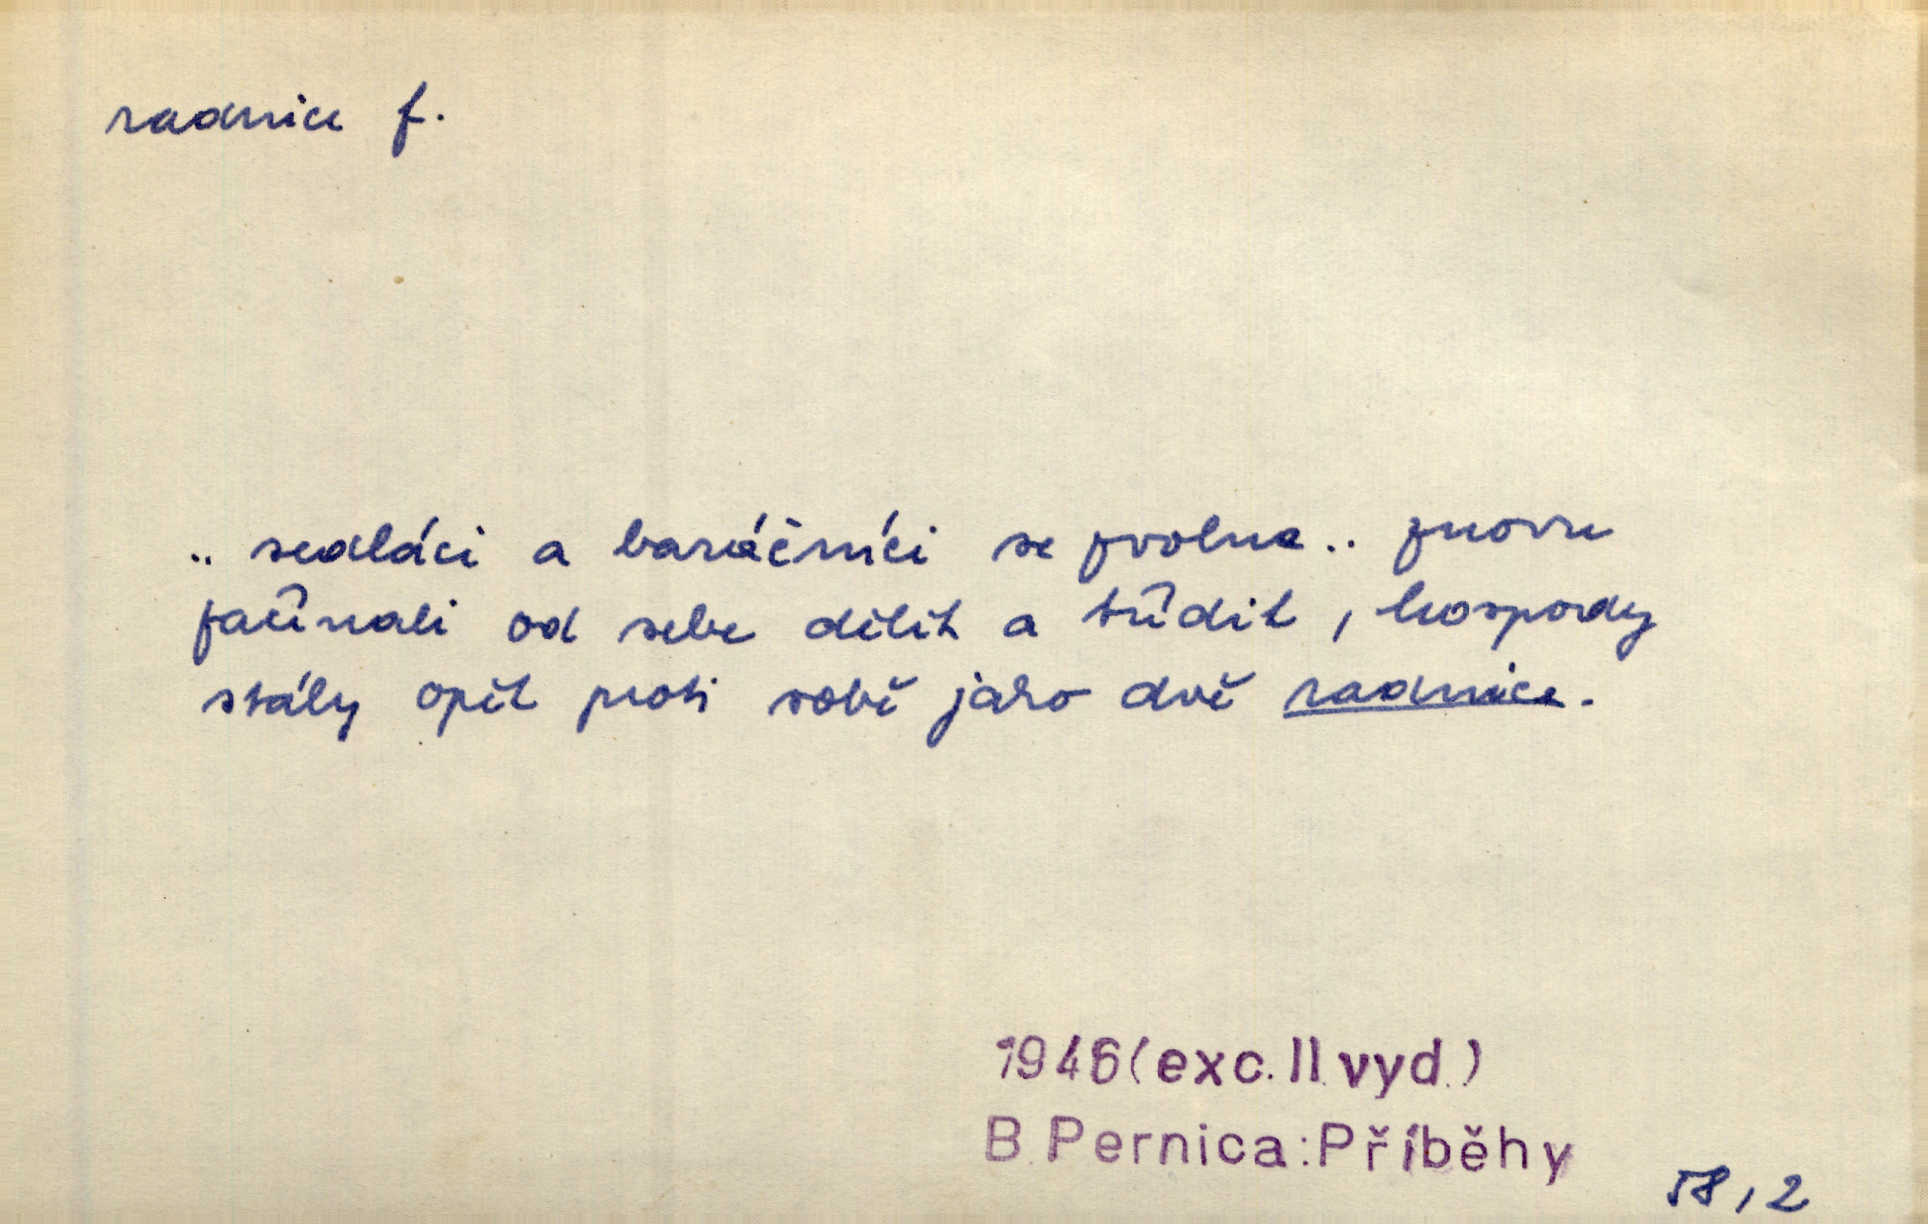 radnice f.
.. sedláci a baráčníci se zvolna .. znovu
začínali od sebe dělit a třídit, hospody
stály opět proti sobě jako dvě radnice.
1946 (exc. II. vyd.)
B. Pernica: Příběhy
58, 2